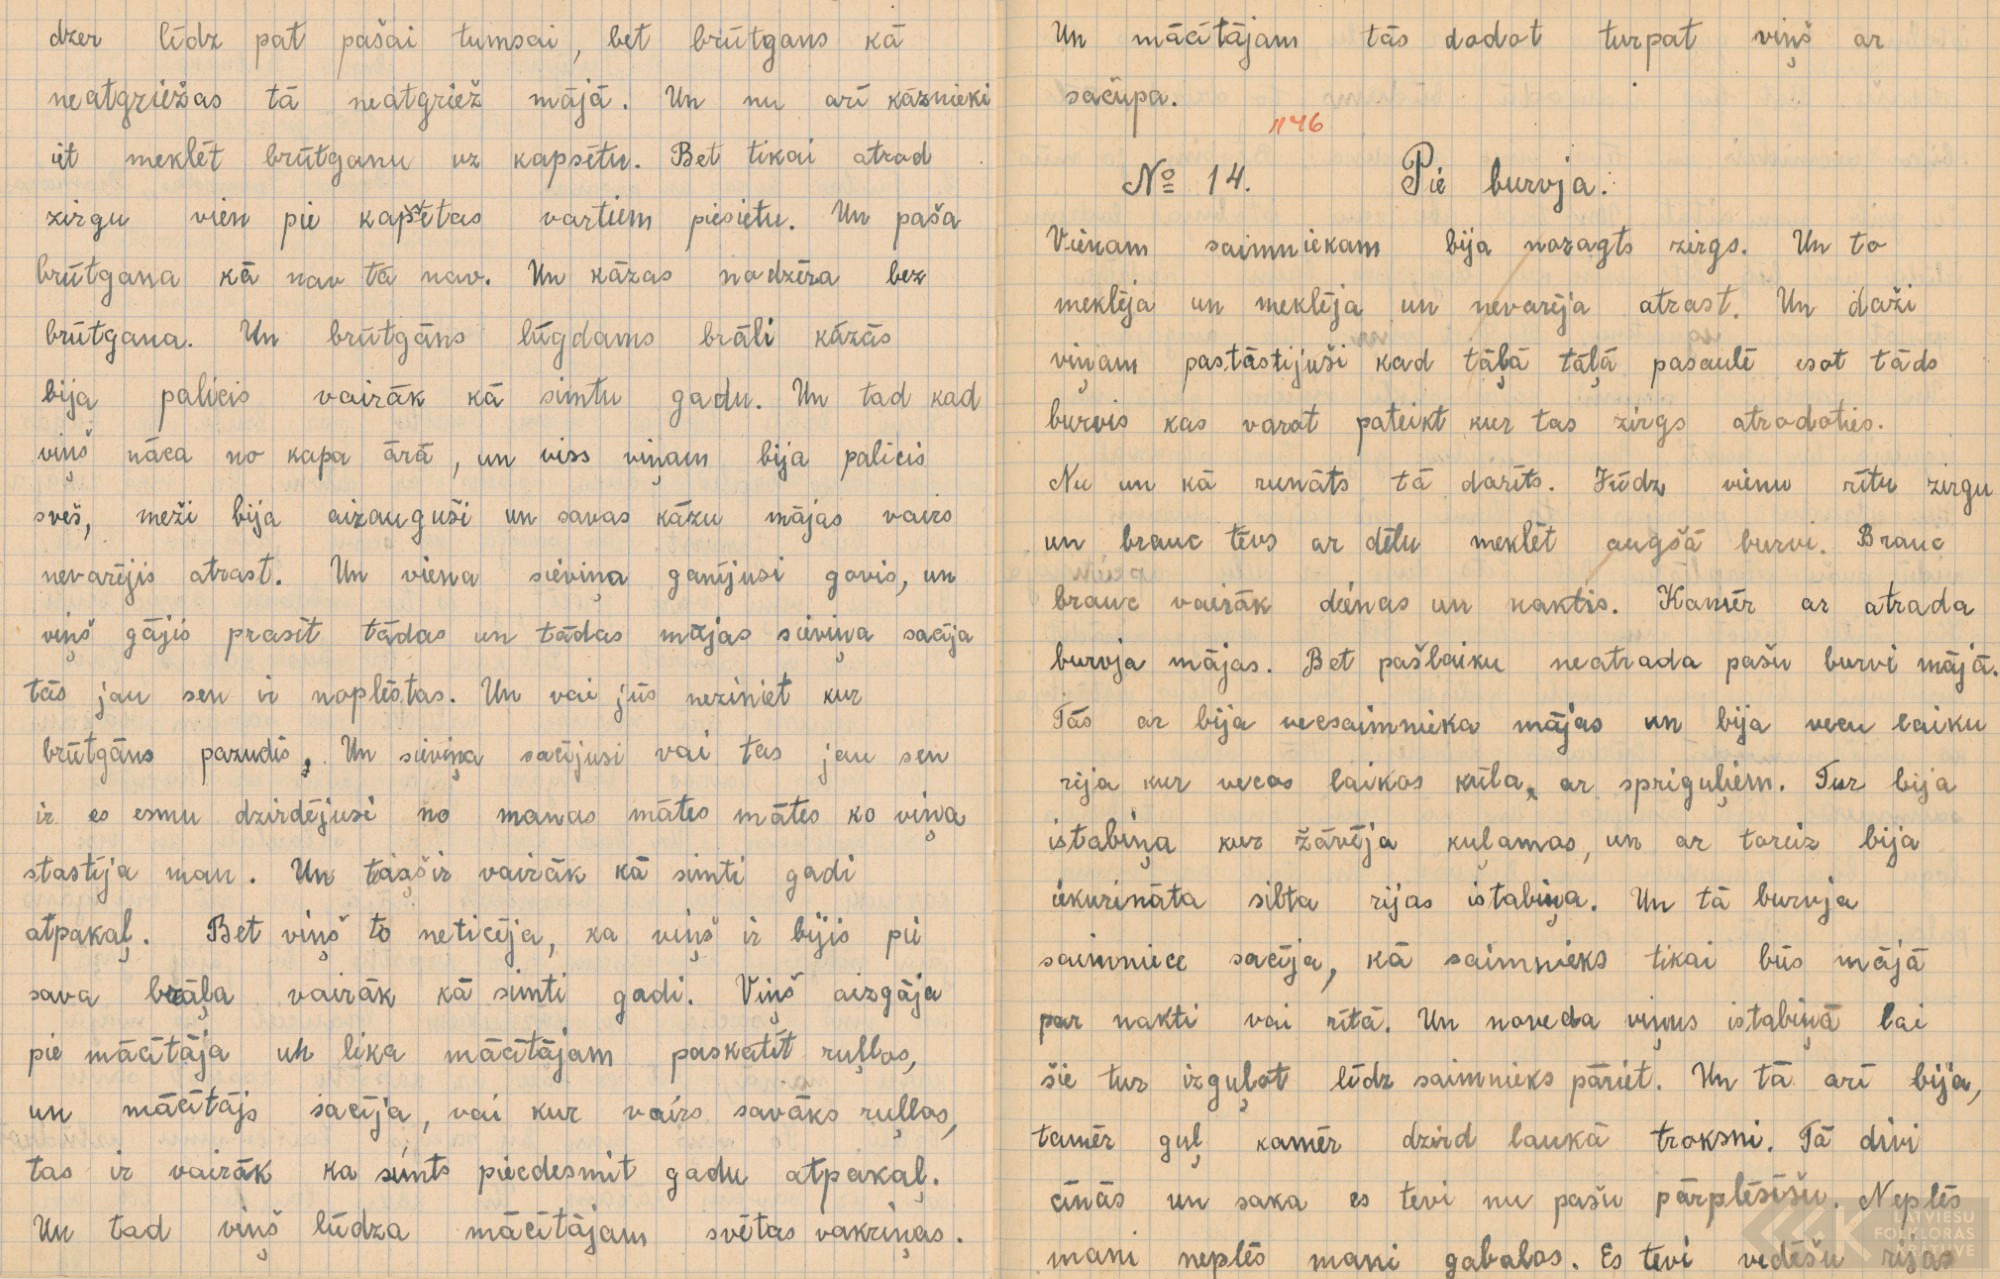 dzer līdz pat pašai tumsai, bet brūtgans kā
neatgriežas tā neatgriež mājā. Un nu arī kāznieki
iet meklēt brūtganu uz kapsētu. Bet tikai atrod
zirgu vien pie kapsētas vārtiem piesietu. Un paša
brūtgana kā nav tā nav. Un kāzas nodzēra bez
brūtgana. Un brūtgāns lūgdams brāli kāzās
bija palicis vairāk kā simtu gadu. Un tad kad
viņš nāca no kapa ārā, un viss viņam bija palicis
sveš, meži bija aizauguši un savas kāzu mājas vairs
nevarējis atrast. Un viena sieviņa ganījusi govis, un
viņš gājis prasīt tādas un tādas mājas sieviņa sacīja
tās jau sen ir noplēstas. Un vai jūs neziniet kur
brūtgāns pazudis, Un sieviņa sacījusi vai tas jau sen
ir es esmu dzirdējusi no manas mātes mātes ko viņa
stastīja man. Un tas ir vairāk kā simti gadi
atpakaļ. Bet viņš to neticēja, ka viņš ir bijis pie
sava brāļa vairāk kā simti gadi. Viņš aizgāja
pie mācītāja un lika mācītājam paskatīt ruļļos,
un mācītājs sacīja, vai kur vairs savāks ruļļos,
tas ir vairāk ka simts piecdesmit gadu atpakaļ.
Un tad viņš lūdza mācītājam svētas vakriņas.
Un mācītājam tās dodot turpat viņš ar
sačupa.
1146
No 14. Pie burvja.
Vienam saimniekam bija nozagts zirgs. Un to
meklēja un meklēja un nevarēja atrast. Un daži
viņam pastāstijuši kad tāļā tāļā pasaulē esot tāds
burvis kas varot pateikt kur tas zirgs atrodoties.
Nu un kā runāts tā darīts. Jūdz vienu rītu zirgu
un brauc tēvs ar dēlu meklēt augšā burvi. Brauc
brauc vairāk dienas un naktis. Kamēr ar atrada
burvja mājas. Bet pašlaiku neatrada pašu burvi mājā.
Tās ar bija vecsaimnieka mājas un bija vecu laiku
rija kur vecos laikos kūla, ar spriguļiem. Tur bija
istabiņa kur žāvēja kuļamos, un ar toreiz bija
iekurināta silta rijas istabiņa. Un tā burvja
saimniece sacīja, kā saimnieks tikai būs mājā
par nakti vai rītā. Un noveda viņus istabiņā lai
šie tur izguļot līdz saimnieks pāriet. Un tā arī bija,
tamēr guļ kamēr dzird laukā troksni. Tā divi
cīnās un saka es tevi nu pašu pārplēsīšu. Neplēs
mani neplēs mani gabalos. Es tevi vedēšu rijas
LATVIEŠU
FOLKLORAS
KRĀTUVE